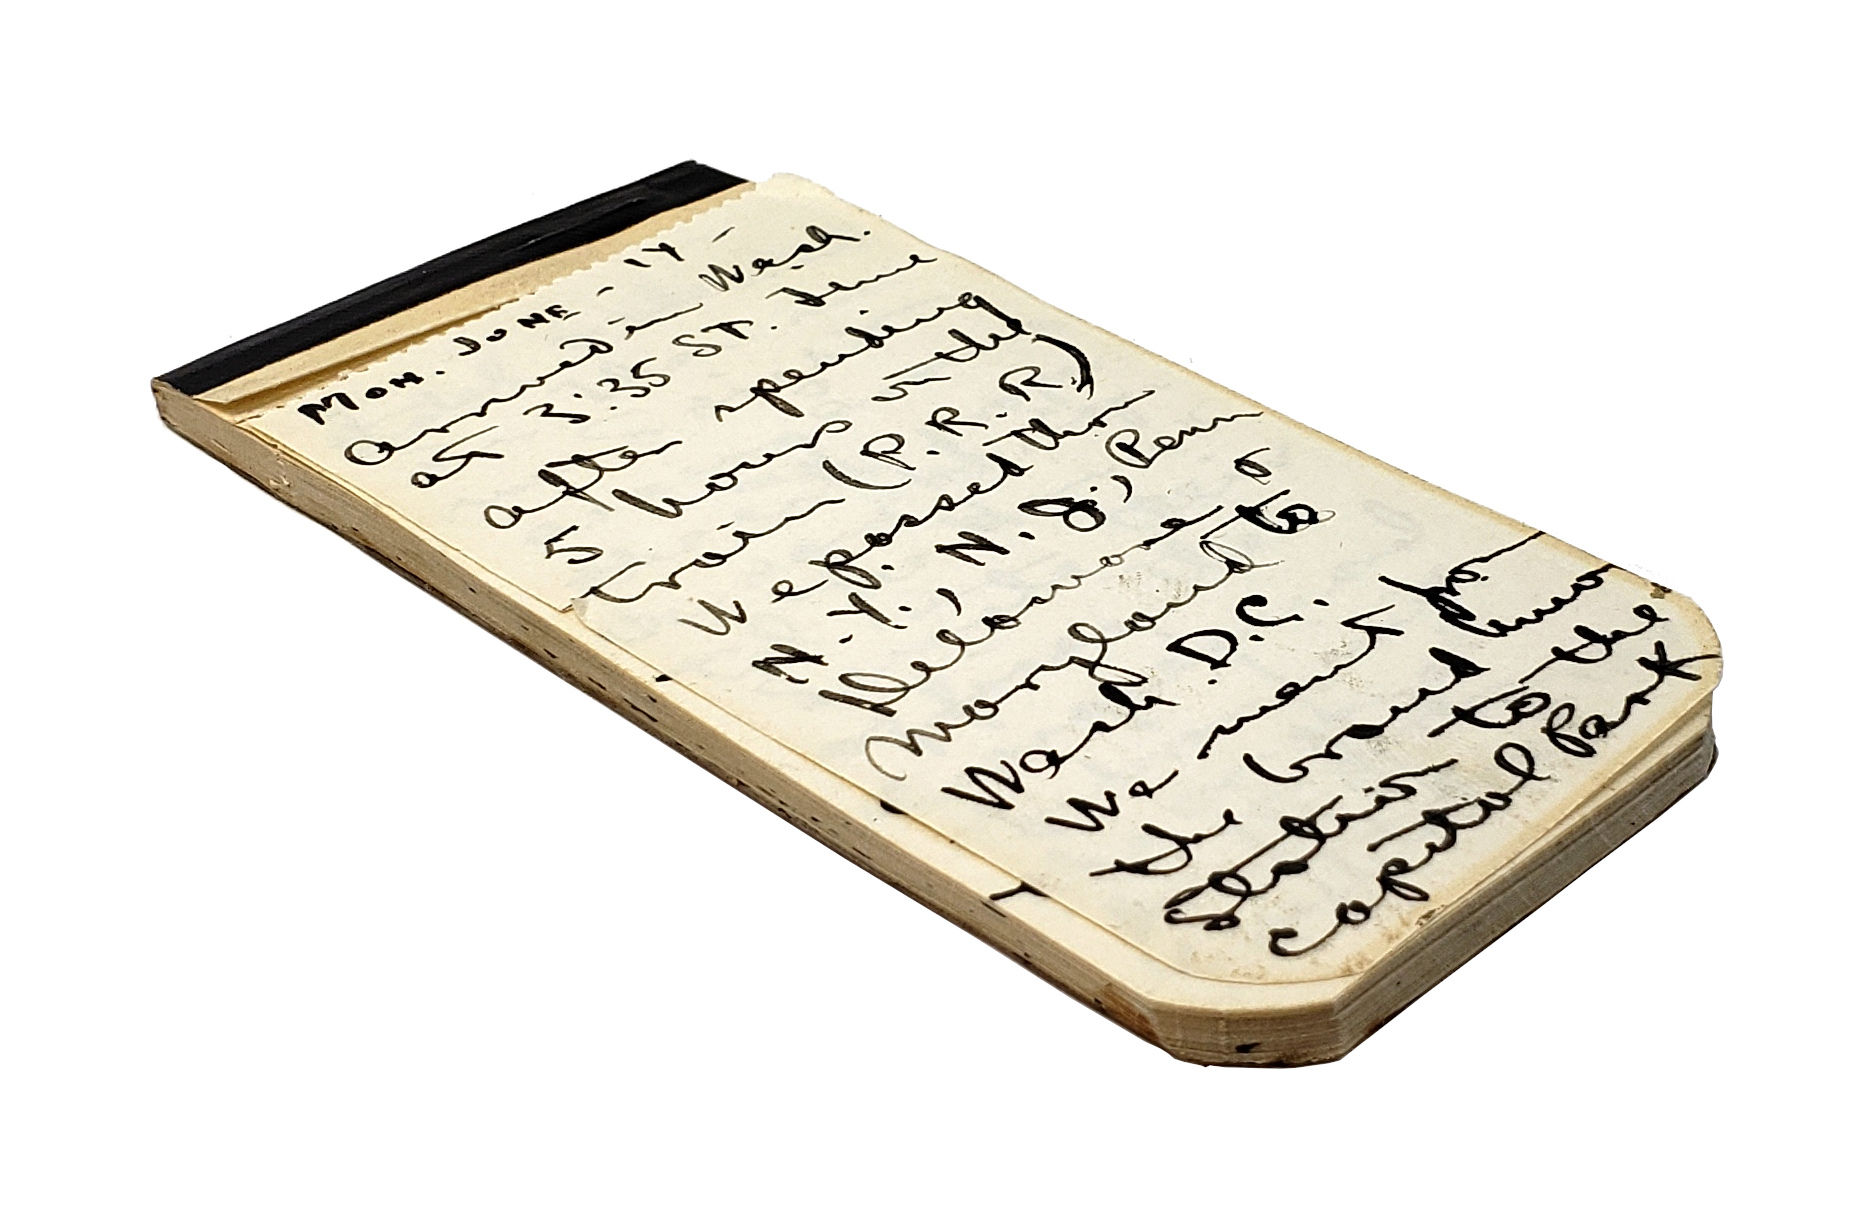 MON. JUNE - 14 -
Arrived in Wash.
at 3:35 ST. Time
after spending
5 hours in the
train (P.R.R.)
We passed thru
N.Y., N.J., Penn
Delaware &
Maryland to
Wash. D.C.
We went from
the train Union
Station to the
Capitol Park